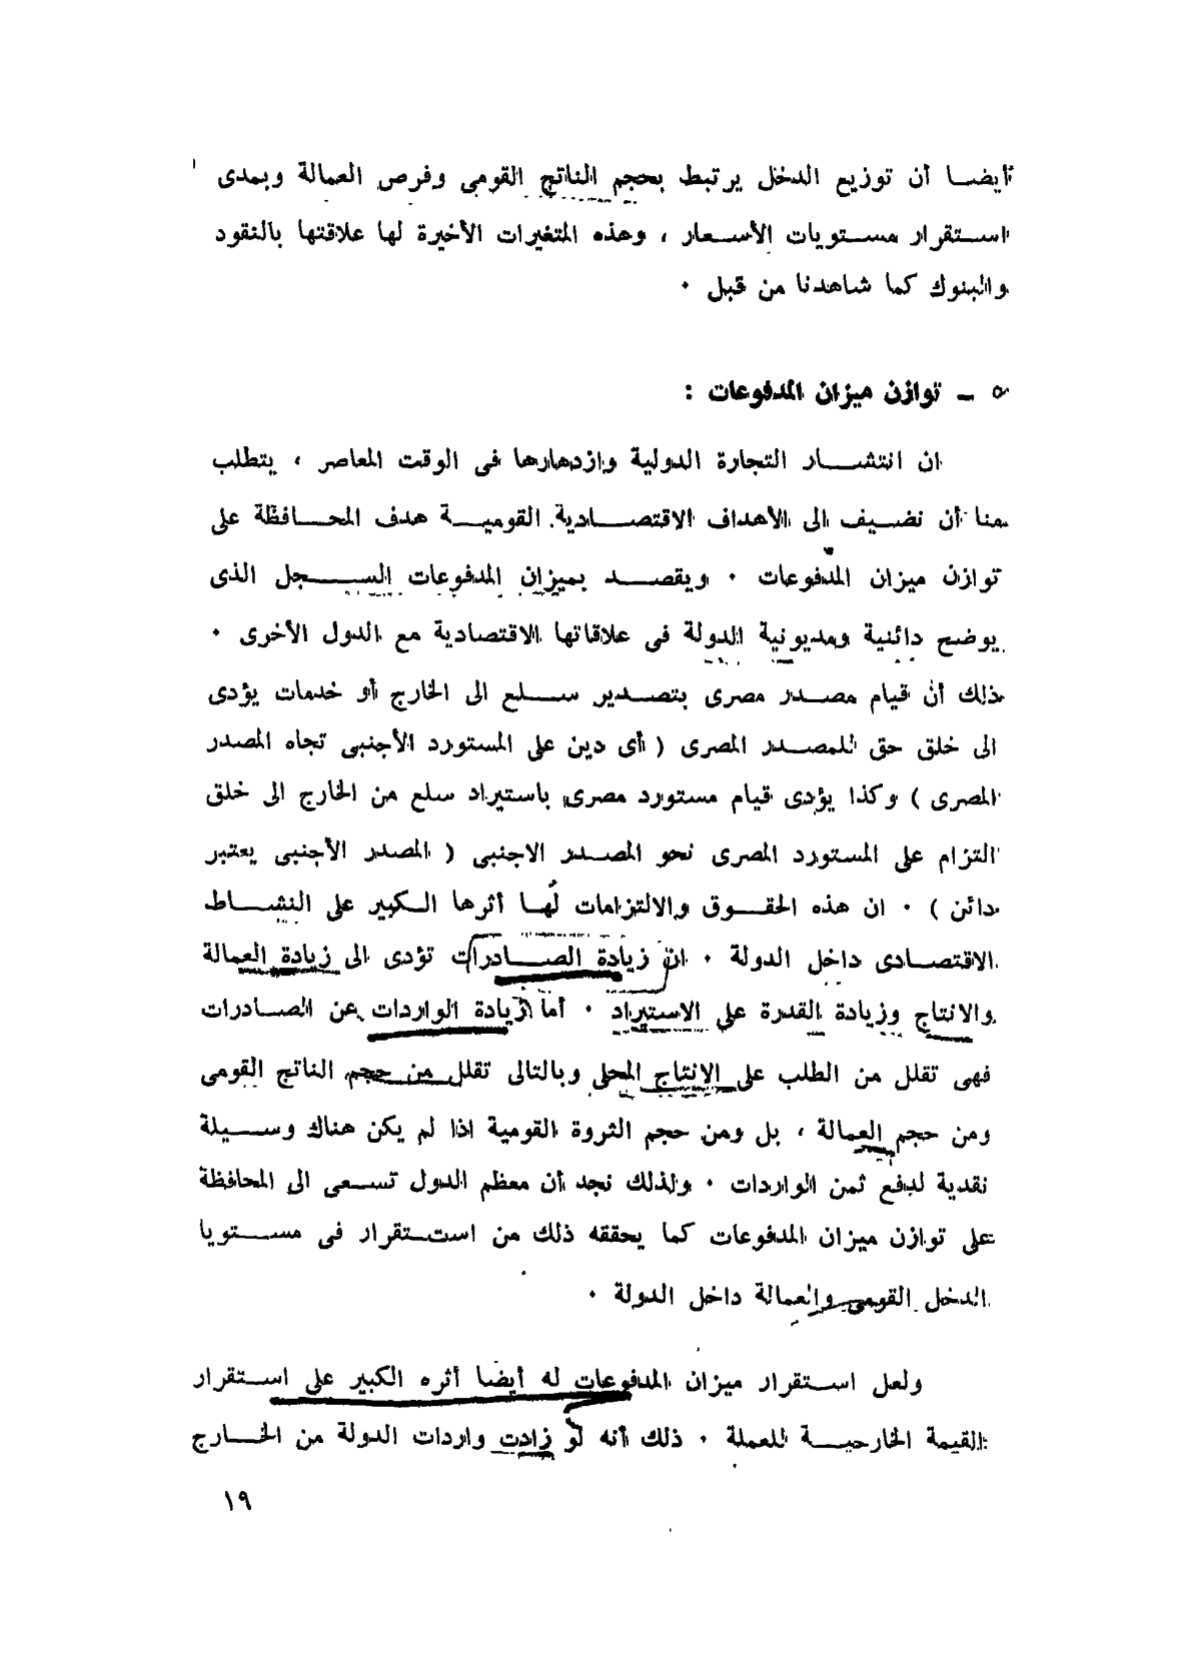 أيضا أن توزيع الدخل يرتبط بحجم الناتج القومى وفرص العمالة وبمدى
استقرار مستويات الأسعار ، وهذه المتغيرات الأخيرة لها علاقتها بالنقود
والبنوك كما شاهدنا من قبل ٠
٥ ــ توازن ميزان المدفوعات :
ان انتشار التجارة الدولية وازدهارها فى الوقت المعاصر ، يتطلب
منا أن نضيف الى الأهداف الاقتصادية القومية هدف المحافظة على
توازن ميزان المدفوعات ٠ ويقصد بميزان المدفوعات السجل الذى
يوضح دائنية ومديونية الدولة فى علاقاتها الاقتصادية مع الدول الأخرى ٠
ذلك أن قيام مصدر مصرى بتصدير سلع الى الخارج أو خدمات يؤدى
الى خلق حق للمصدر المصرى ( أى دين على المستورد الأجنبى تجاه المصدر
المصرى ) وكذا يؤدى قيام مستورد مصرى باستيراد سلع من الخارج الى خلق
التزام على المستورد المصرى نحو المصدر الاجنبى ( المصدر الأجنبى يعتبر
دائن ) ٠ ان هذه الحقوق والالتزامات لها أثرها الكبير على النشاط
الاقتصادى داخل الدولة ٠ ان زيادة الصادرات تؤدى الى زيادة العمالة
والانتاج وزيادة القدرة على الاستيراد ٠ أما زيادة الواردات عن الصادرات
فهى تقلل من الطلب على الانتاج المحلى وبالتالى تقلل من حجم الناتج القومى
ومن حجم العمالة ، بل ومن حجم الثروة القومية اذا لم يكن هناك وسيلة
نقدية لدفع ثمن الواردات ٠ ولذلك نجد أن معظم الدول تسعى الى المحافظة
على توازن ميزان المدفوعات كما يحققه ذلك من استقرار فى مستويا
الدخل القومى والعمالة داخل الدولة ٠
ولعل استقرار ميزان المدفوعات له أيضا أثره الكبير على استقرار
القيمة الخارجية للعملة ٠ ذلك أنه لو زادت واردات الدولة من الخارج
١٩